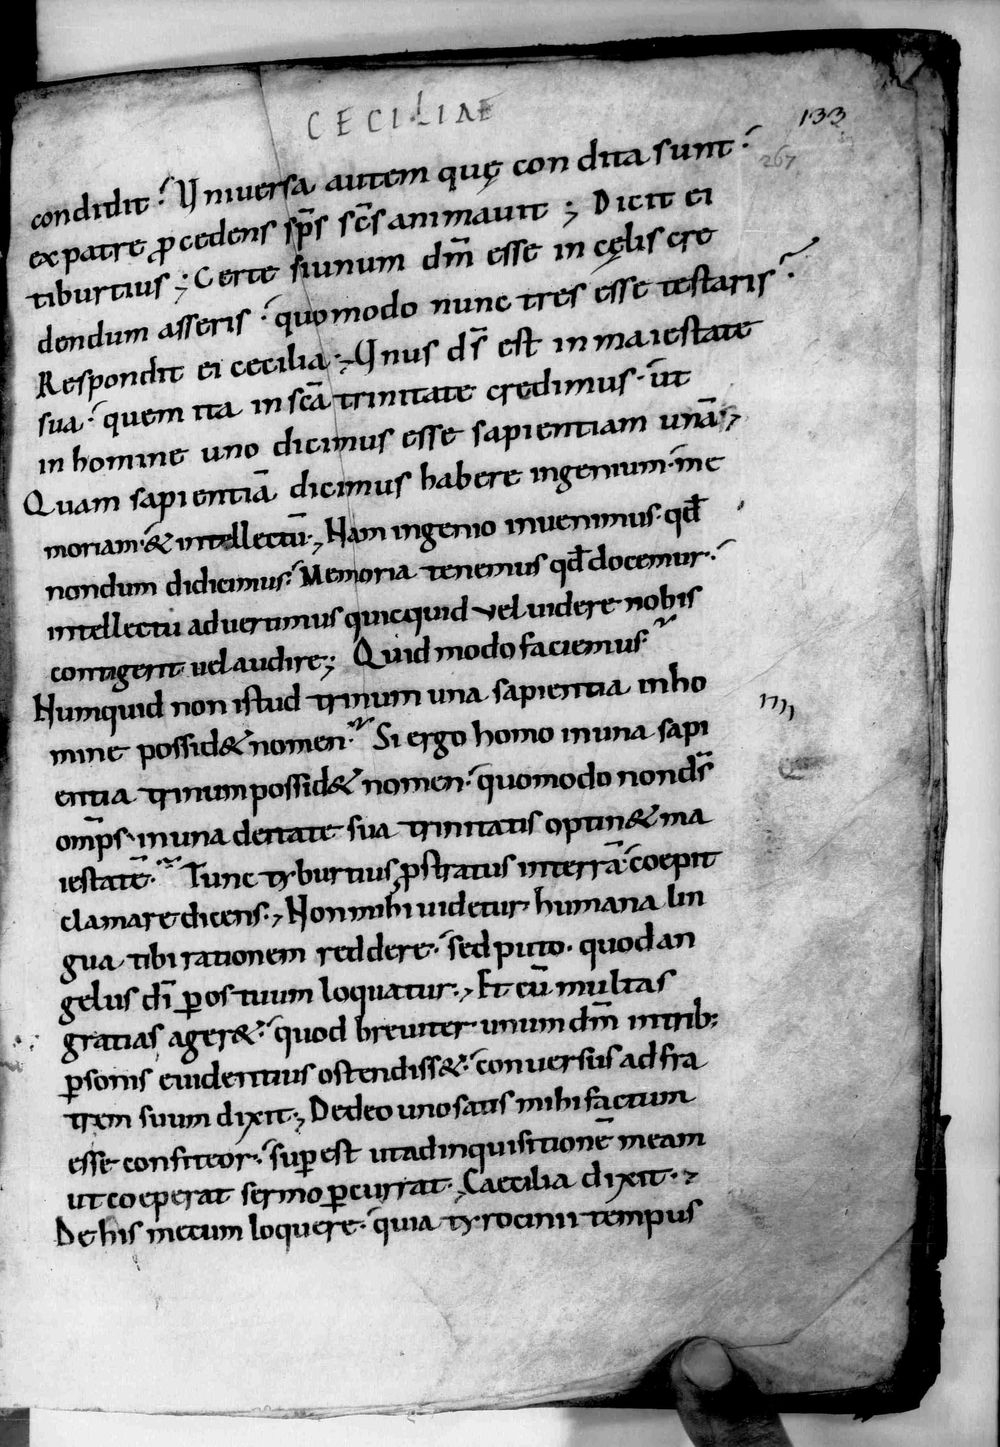 CECILIAE
133
267
condidit. Universa autem quę condita sunt.
ex patre ꝓcedens sp̄s sc̄s animauit; Dicit ei
tiburtius; Certe si unum dm̄ esse in cęlis cre
dendum asseris. quomodo nunc tres esse testaris.
Respondit ei cecilia; Unus ds̄ est in maiestate
sua. quem ita in sc̄a trinitate credimus. ut
in homine uno dicimus esse sapientiam unā;
Quam sapientiā dicimus habere ingenium. me
moriam. & intellectū; Nam ingenio inuenimus. qđ
nondum didicimus. Memoria tenemus qđ docemur.
intellectu aduertimus quicquid vel uidere nobis
contigerit uel audire; Quid modo faciemus.
Numquid non istud trinum una sapientia in ho
mine possid& nomen. Si ergo homo in una sapi
entia trinum possid& nomen. quomodo non ds̄
omp̄s. in una deitate sua trinitatis optin& ma
iestatē. Tunc tyburtius ꝓstratus in terrā. coepit
clamare dicens; Non mihi uidetur humana lin
gua tibi rationem reddere. sed puto. quod an
gelus dī ꝑ os tuum loquatur; Et cū multas
gratias ager&. quod breuiter unum dm̄ in trib;
ꝑsonis euidentius ostendiss&. conuersus ad fra
trem suum dixit; De deo uno satis mihi factum
esse confiteor. suꝑest ut ad inquisitionē meam
ut coeperat sermo ꝑcurrat; Caecilia dixit;
De his mecum loquere. quia tyrocinii tempus